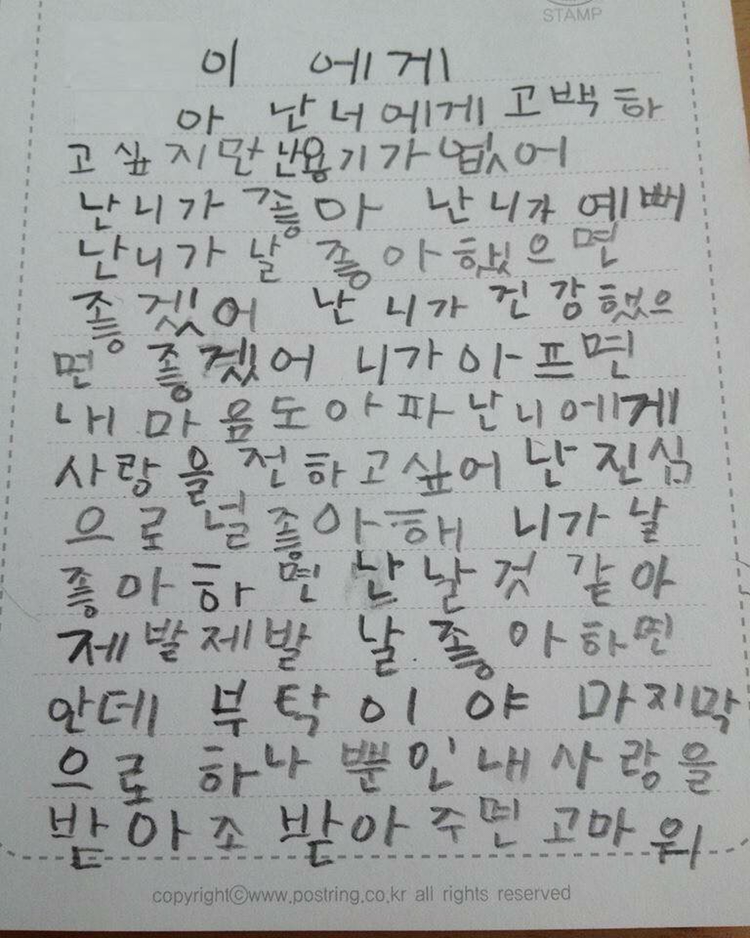 STAMP
이 에게
아 난 너에게 고백하
고싶지만 난용기가 없어
난니가 좋아 난니가 예뻐
난니가 날 좋아했으면
좋겠어 난 니가 건강했으
면 좋겠어 니가아프면
내마음도아파난니에게
사랑을전하고싶어난진심
으로널좋아해 니가날
좋아하면 난날것 같아
제발제발 날.좋아하면
안데 부탁이야 마지막
으로하나뿐인내사랑을
받아조 받아주면고마워
copyright©www.postring.co.kr all rights reserved